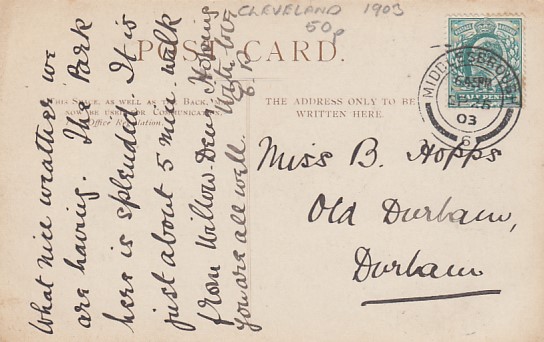 CLEVELAND 1903
50p
POST CARD.
THIS SPACE, AS WELL AS THE BACK, MAY
NOW BE USED FOR COMMUNICATION.
Office Regulation.
THE ADDRESS ONLY TO BE
WRITTEN HERE.
MIDDLESBROUGH
SP 26
03
6
Miss B. Hopps
Old Durham,
Durham
What nice weather we
are having. The Park
here is splendid. It is
just about 5 min. walk
from Willow-Dene. Hoping
you are all well.
With love